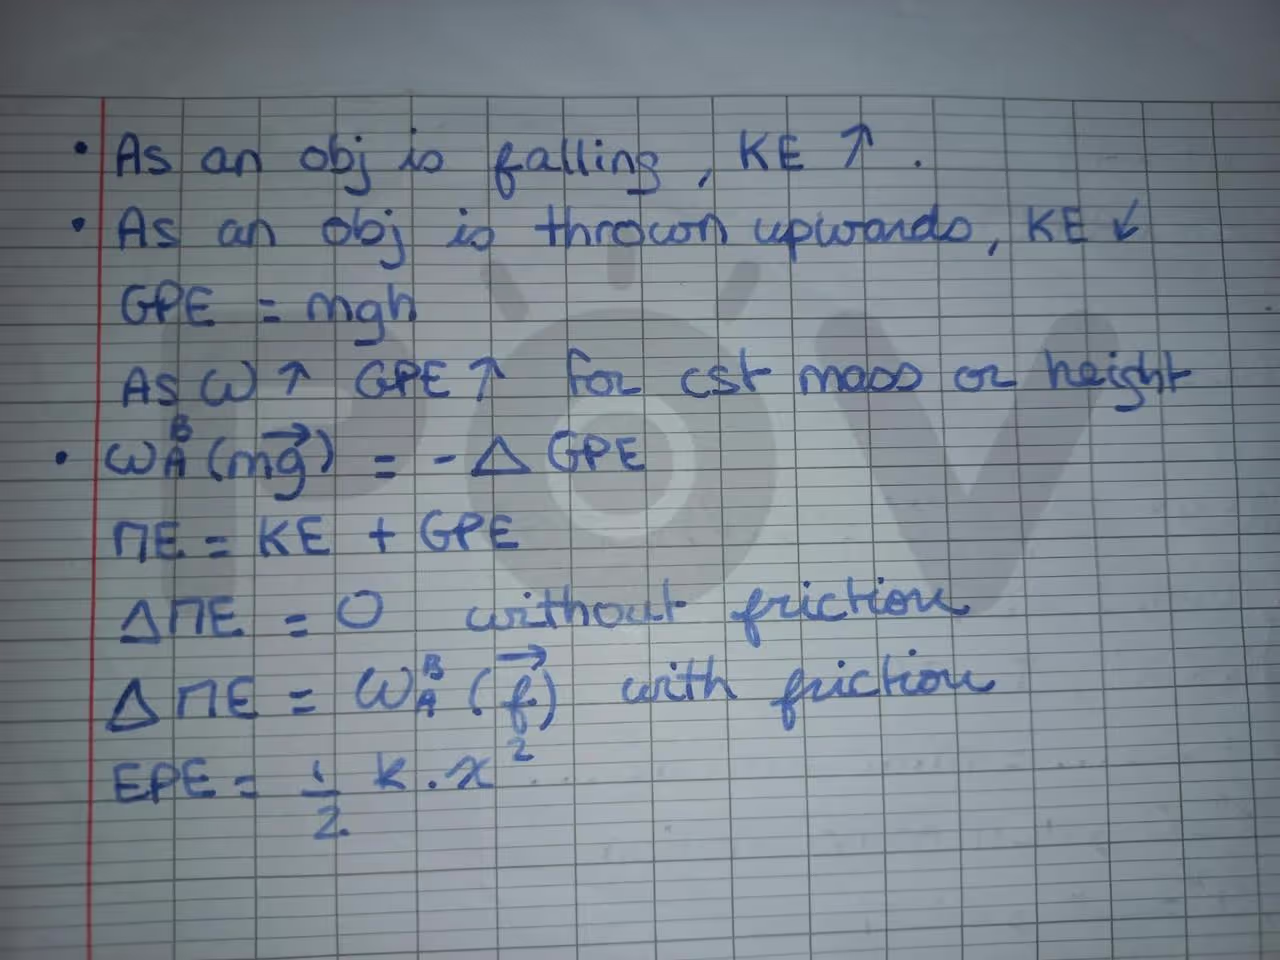 • As an obj is falling, KE ↑.
• As an obj is thrown upwards, KE ↙
GPE = mgh
As W ↑ GPE ↑ for cst mass or height
• W_A^B (m\vec{g}) = - Δ GPE
ME = KE + GPE
ΔME = 0 without friction
ΔME = W_A^B (\vec{f}) with friction
EPE = 1/2 k . x²
POV